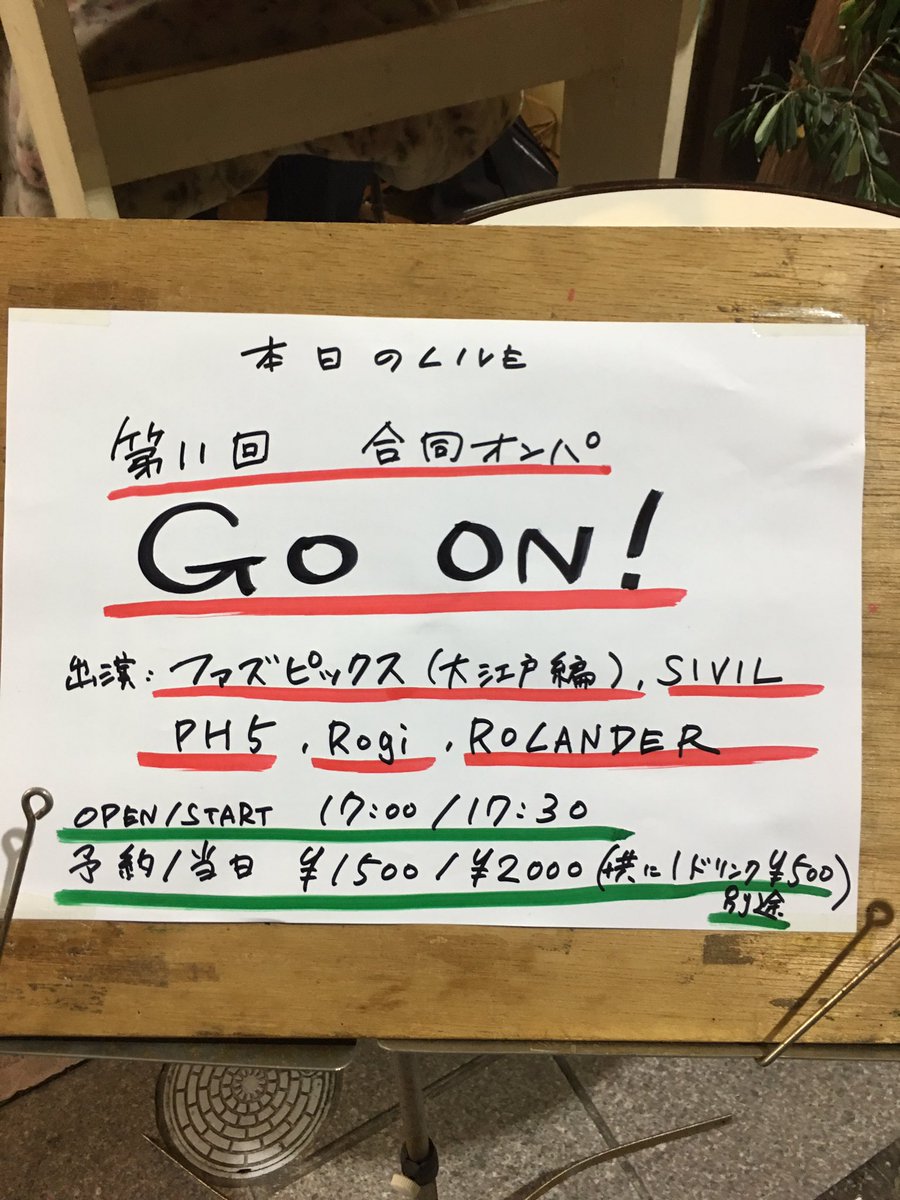 本日のLIVE
第11回 合同オンパ
GO ON!
出演：ファズピックス（大江戸編）, SIVIL
PH5, Rogi, ROLANDER
OPEN/START 17:00/17:30
予約/当日 ¥1500/¥2000（共に1ドリンク¥500）
別途